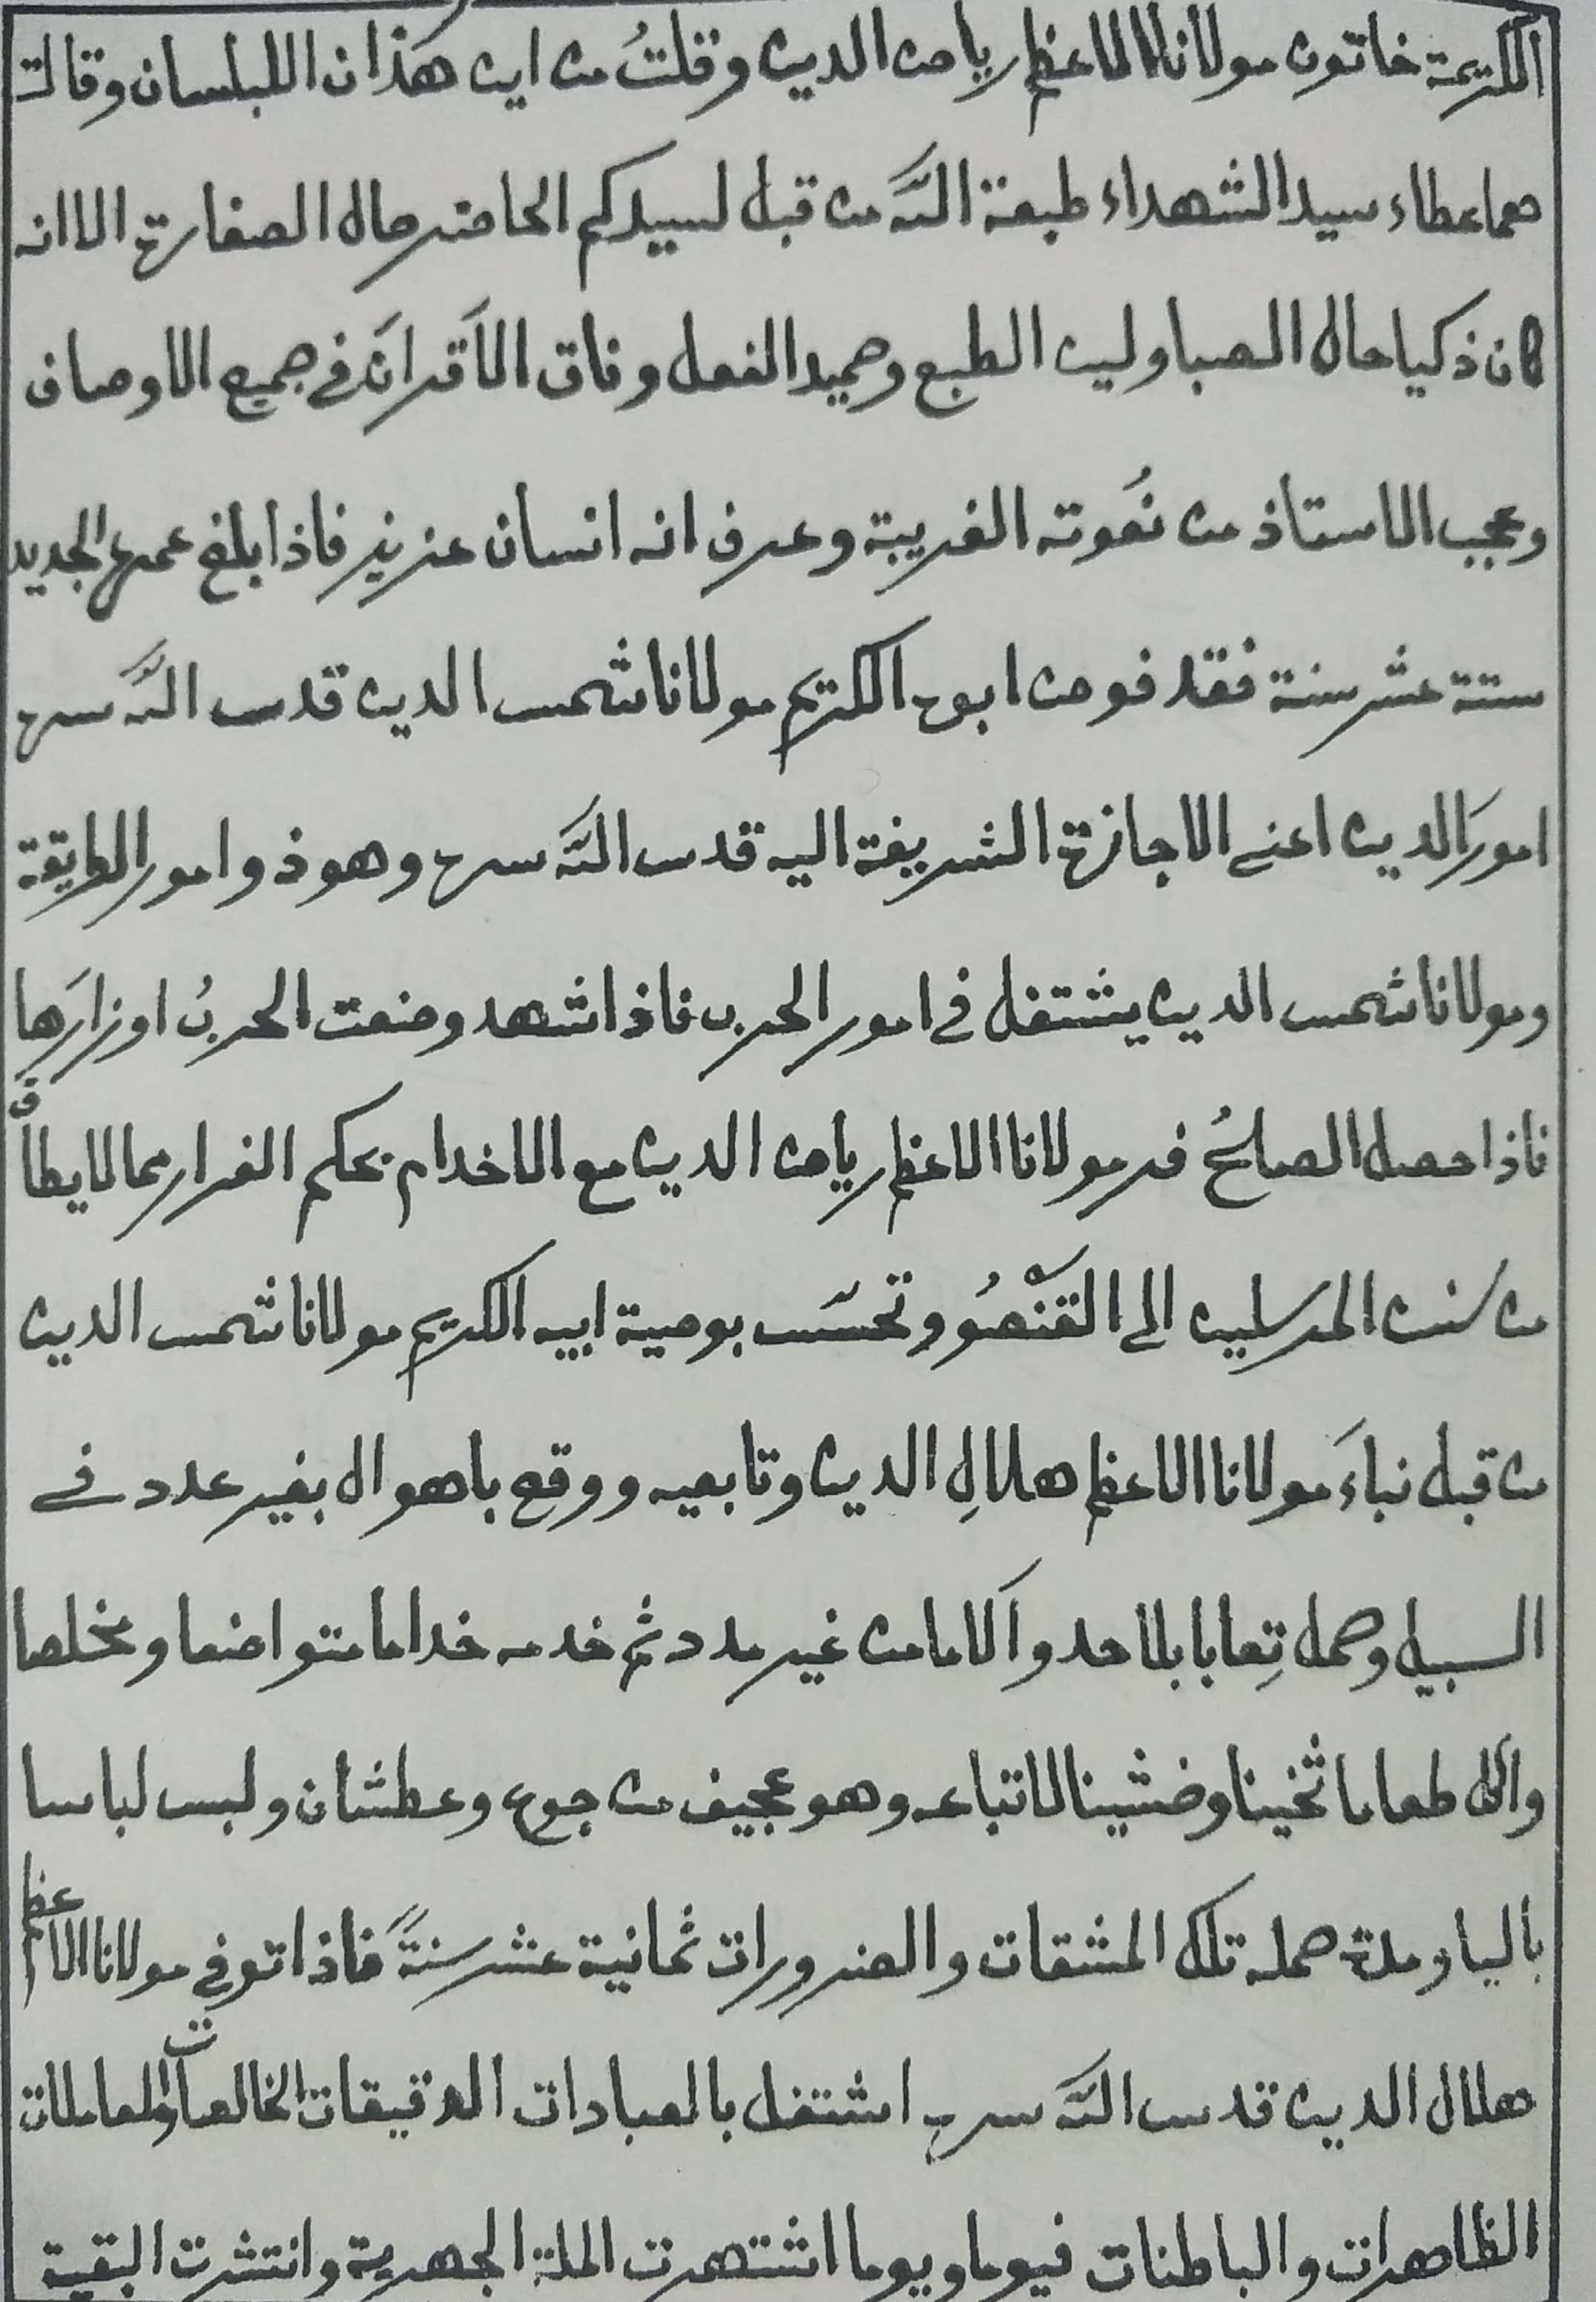 الكريمة خاتون مولانا الاعظم رياض الدين وقلتُ من اين هذان اللبلسان وقالت
هما عطاء سيد الشهداء طبعة اللّٰه من قبل لسيدكم الحاضر حال الصفارة الا انه
كان ذكيا حال الصبا ولين الطبع وحميد الفعل وفاق الاَقرانَ في جميع الاوصاف
وعجب الاستاذ من نُعوته الغريبة وعرف انه انسان عزيز فاذا بلغ عمره الجديد
ستة عشر سنة فقد فوض ابوه الكريم مولانا شمس الدين قدس اللّٰه سره
امورَ الدين اعني الاجازة الشريفة اليه قدس اللّٰه سره وهو ذو امور الطريقة
ومولانا شمس الدين يشتغل في امور الحرب فاذا شهد وضعت الحربُ اوزارَها
فاذا حصل الصلحُ فر مولانا الاعظم رياض الدين مع الاخدام بحكم الفرار مما لا يطاق
من سنن المرسلين الى القَنْصُو وتحسّس بوصية ابيه الكريم مولانا شمس الدين
من قبل نباءَ مولانا الاعظم هلالِ الدين وتابعيه ووقع باهوال بغير عدد في
السبيل وحمل تِعابا بلا حد وآلاما من غير مدد ثم خدمه خداما متواضعا ومخلصا
وأكل طعاما ثخينا وخشينا لاتباعه وهو عجيف من جوع وعطشان ولبس لباسا
باليا ومدة حمله تلك المشقات والضرورات ثمانية عشر سنةً فاذا توفي مولانا الاعظم
هلال الدين قدس اللّٰه سره اشتغل بالعبادات الدقيقات الخالصات والمعاملات
الظاهرات والباطنات فيوما ويوما اشتهرت الملة الجهرية وانتشرت البقية